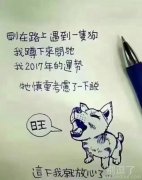 剛在路上遇到一隻狗
我蹲下來問牠
我2017年的運勢
牠慎重考慮了一下說
旺
這下我就放心了